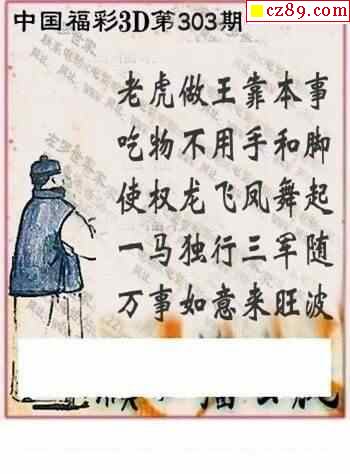 中国福彩3D第303期
cz89.com
老虎做王靠本事
吃物不用手和脚
使权龙飞凤舞起
一马独行三军随
万事如意来旺波